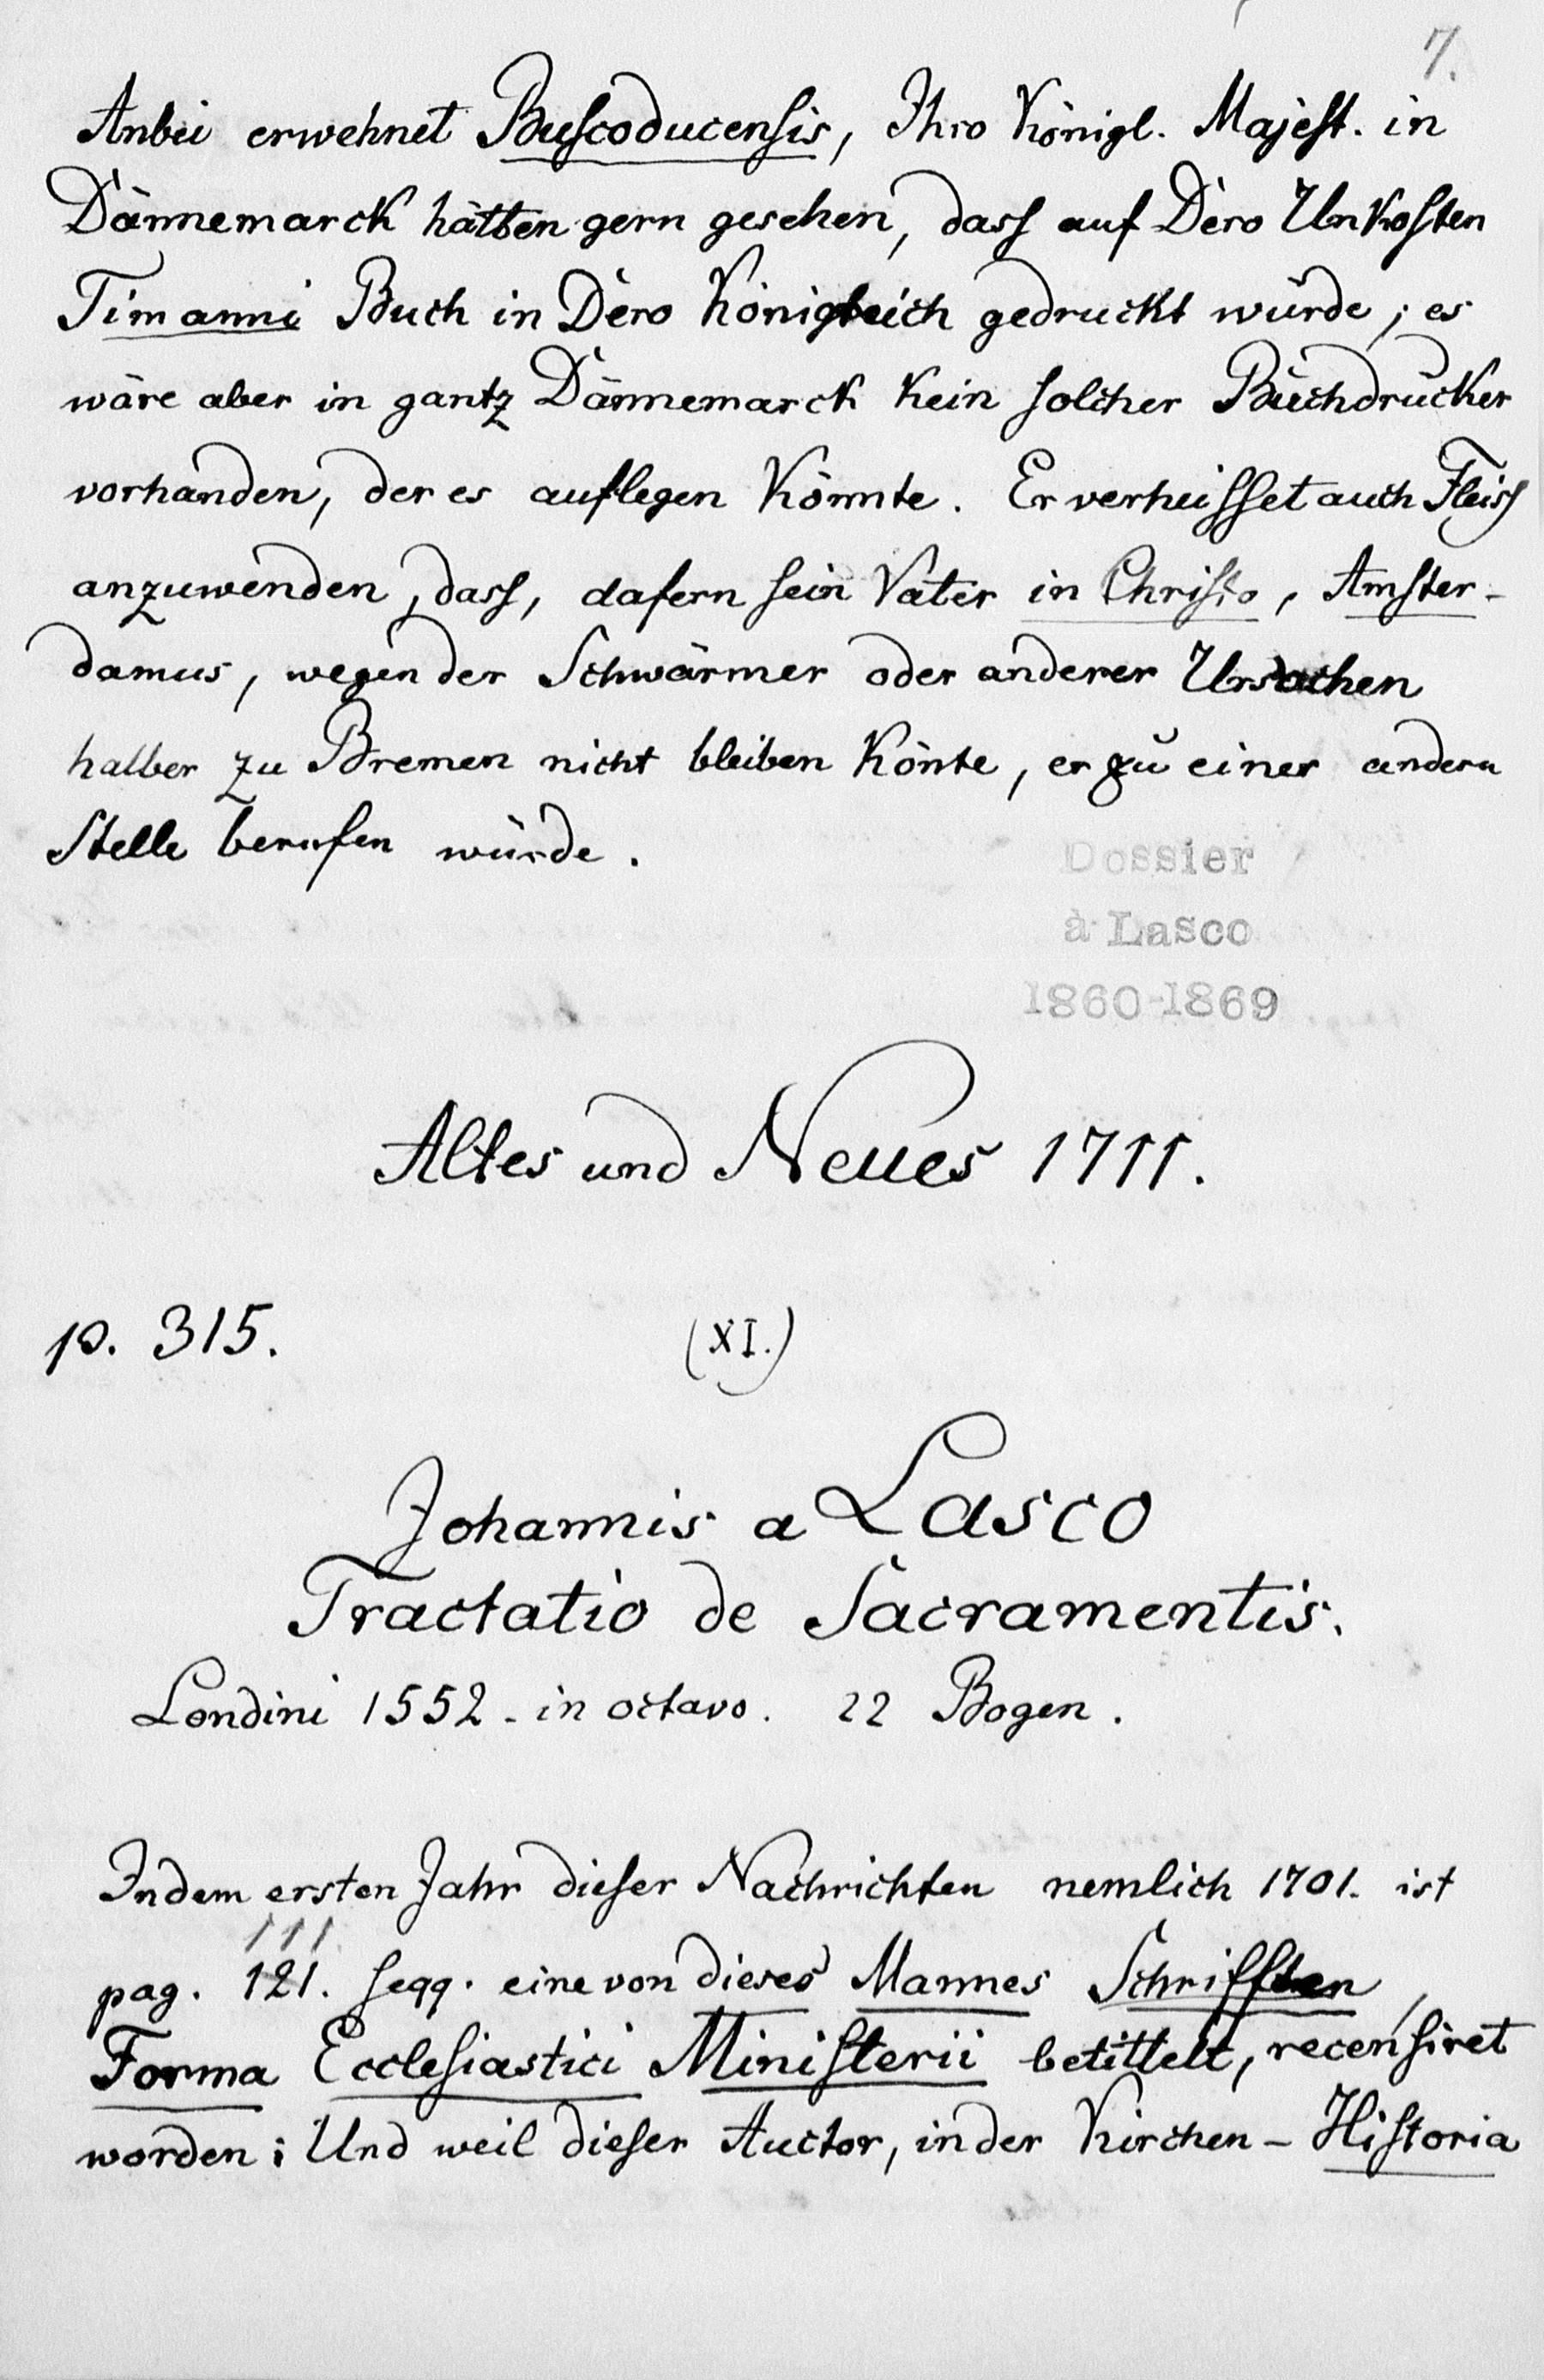 7.
Anbei erwehnet Buscoducensis, Ihro Königl. Majest. in
Dännemarck hätten gern gesehen, dass auf Dero Unkosten
Timanni Buch in Dero Königreich gedruckt würde; es
wäre aber in gantz Dännemarck kein solcher Buchdrucker
vorhanden, der es auflegen könnte. Er verheisset auch Fleiss
anzuwenden, dass, dafern sein Vater in Christo, Amster-
damus, wegen der Schwärmer oder anderer Ursachen
halber zu Bremen nicht bleiben könte, er zu einer andern
Stelle berufen würde.
Dossier
à Lasco
1860-1869
Altes und Neues 1711.
p. 315. (XI.)
Johannis a Lasco
Tractatio de Sacramentis.
Londini 1552. in octavo. 22 Bogen.
In dem ersten Jahr dieser Nachrichten nemlich 1701. ist
111
pag. 121. seqq. eine von dieses Mannes Schrifften,
Forma Ecclesiastici Ministerii betittelt, recensiret
worden; Und weil dieser Auctor, in der Kirchen-Historia